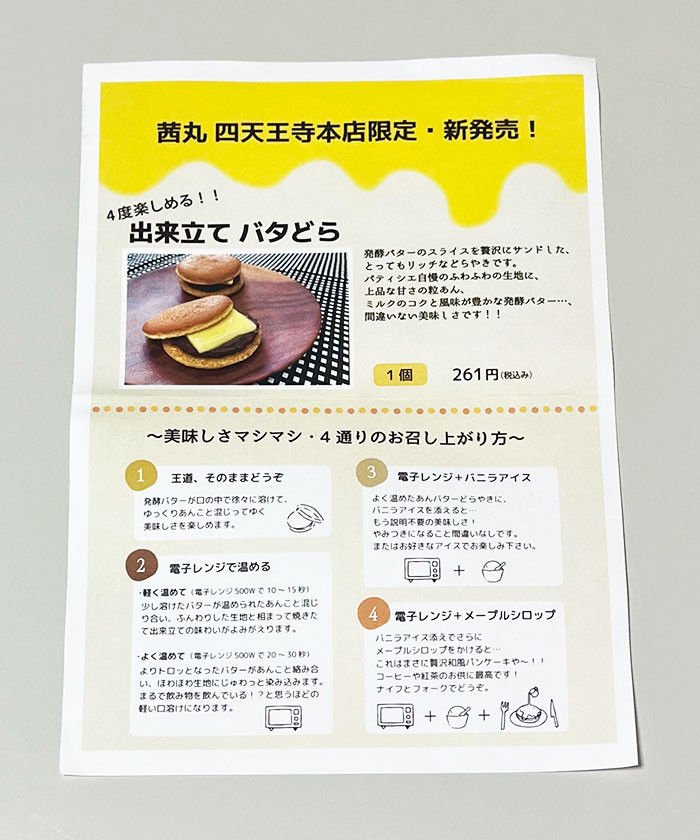 茜丸 四天王寺本店限定・新発売！
4度楽しめる！！
出来立て バタどら
発酵バターのスライスを贅沢にサンドした、
とってもリッチなどらやきです。
パティシエ自慢のふわふわの生地に、
上品な甘さの粒あん、
ミルクのコクと風味が豊かな発酵バター…、
間違いない美味しさです！！
1個 261円(税込み)
～美味しさマシマシ・4通りのお召し上がり方～
1 王道、そのままどうぞ
発酵バターが口の中で徐々に溶けて、
ゆっくりあんこと混じってゆく
美味しさを楽しめます。
2 電子レンジで温める
・軽く温めて（電子レンジ500Wで10～15秒）
少し溶けたバターが温められたあんこと混じ
り合い、ふんわりした生地と相まって焼きた
て出来立ての味わいがよみがえります。
・よく温めて（電子レンジ500Wで20～30秒）
よりトロッとなったバターがあんこと絡み合
い、ほわほわ生地にじゅわっと染み込みます。
まるで飲み物を飲んでいる！？と思うほどの
軽い口溶けになります。
3 電子レンジ＋バニラアイス
よく温めたあんバターどらやきに、
バニラアイスを添えると…
もう説明不要の美味しさ！
やみつきになること間違いなしです。
またはお好きなアイスでお楽しみ下さい。
＋
4 電子レンジ＋メープルシロップ
バニラアイス添えでさらに
メープルシロップをかけると…
これはまさに贅沢和風パンケーキや～！！
コーヒーや紅茶のお供に最高です！
ナイフとフォークでどうぞ。
＋ ＋